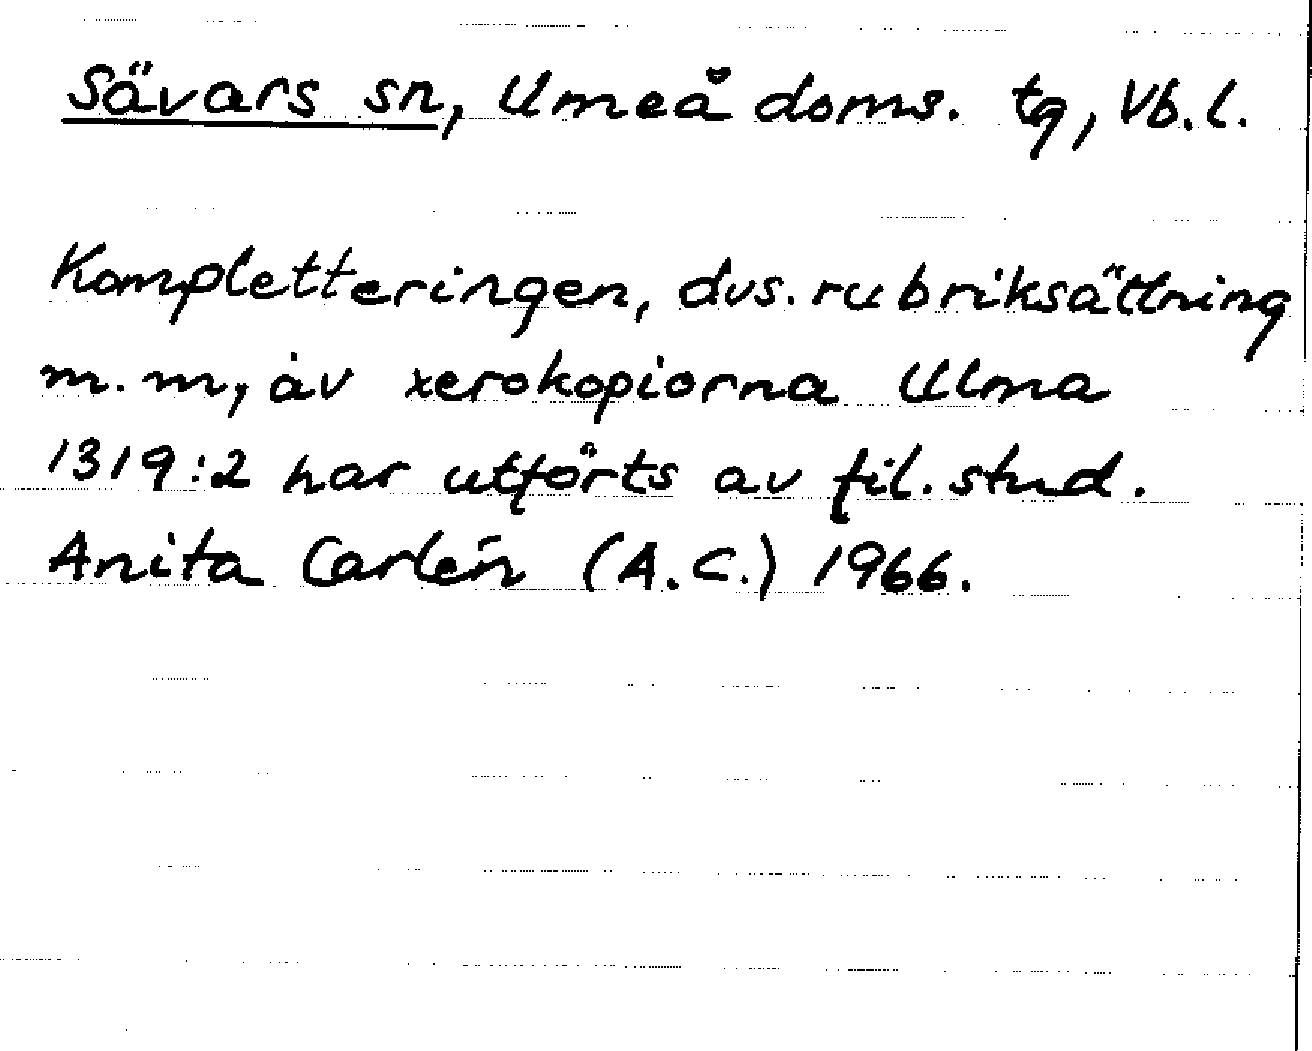 Sävars sn, Umeå doms. tg, Vb.l.
Kompletteringen, dvs. rubriksättning
m.m, av xerokopiorna Ulma
1319:2 har utförts av fil. stud.
Anita Carlén (A.C.) 1966.